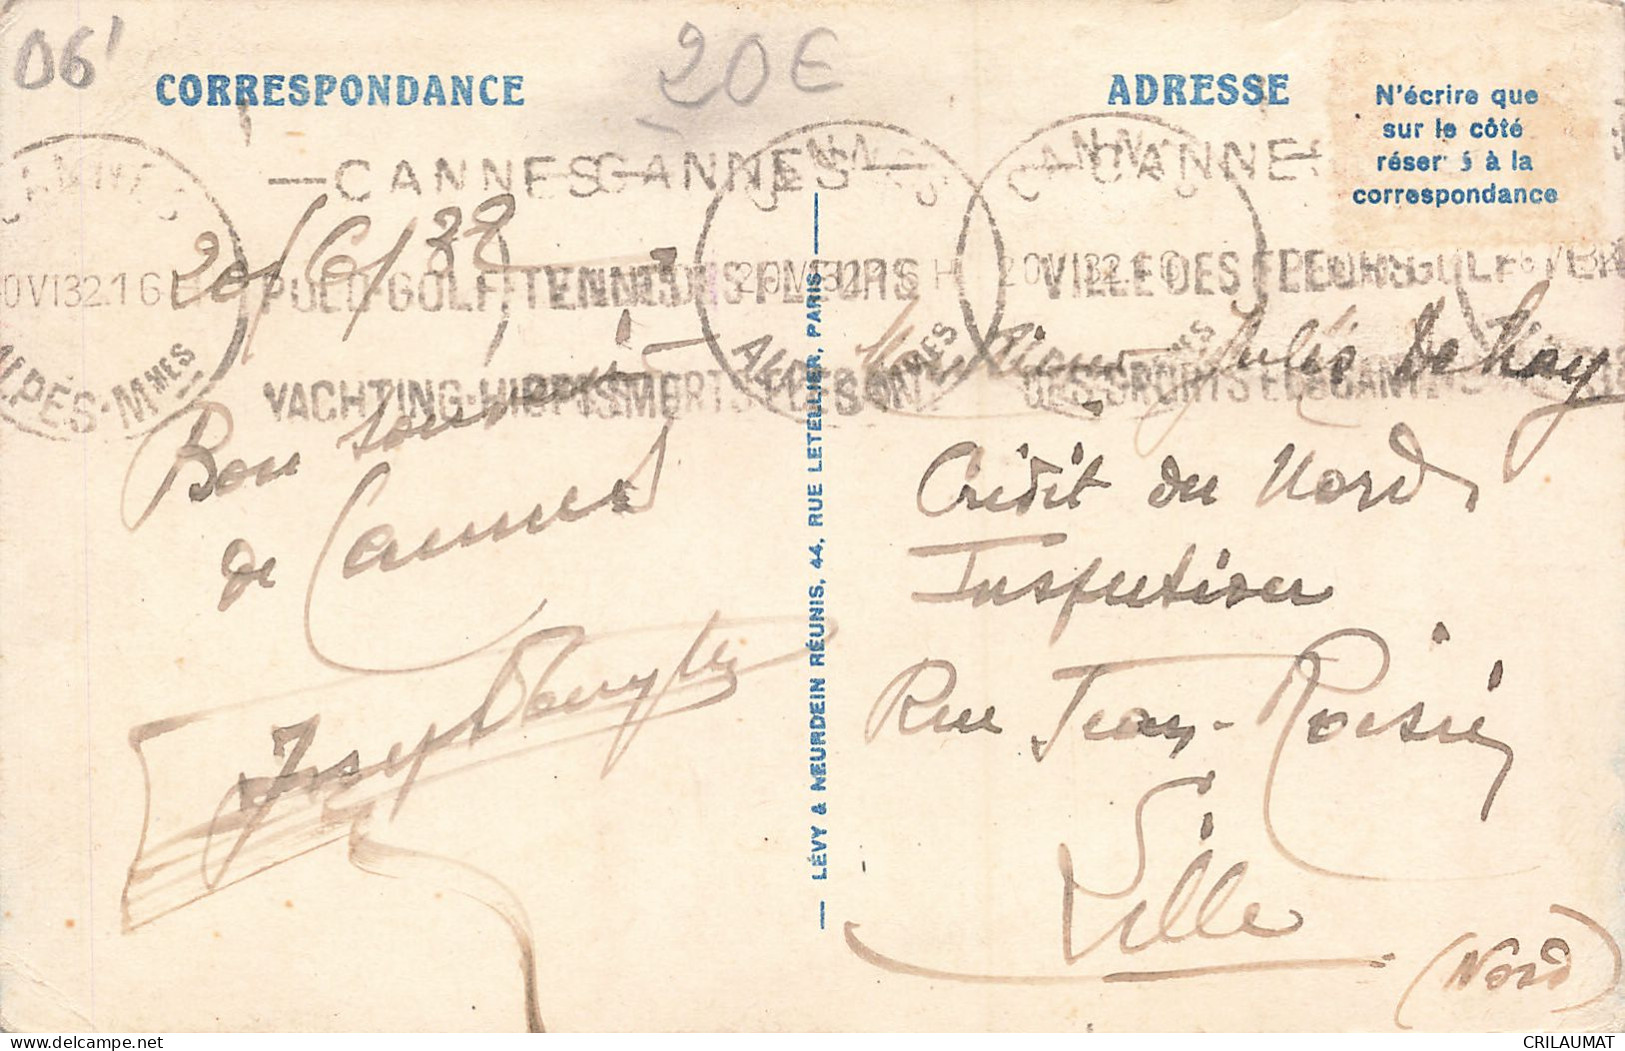 06'
20€
CORRESPONDANCE
ADRESSE
N'écrire que
sur le côté
réser é à la
correspondance
CANNES CANNES CANNES
CANNES CANNES
20/6/32
20 VI 32 16 H
POLO-GOLF-TENNIS
VILLE DES FLEURS
YACHTING-HIPPISME
DES SPORTS ELEGANTS
ALPES-MMES
Bon souvenir
de Cannes
Joseph
LÉVY & NEURDEIN RÉUNIS, 44, RUE LETELLIER, PARIS
Monsieur Jules Dehay
Crédit du Nord,
Inspection
Rue Jean-Roisin
Lille
(Nord)
delcampe.net
CRILAUMAT